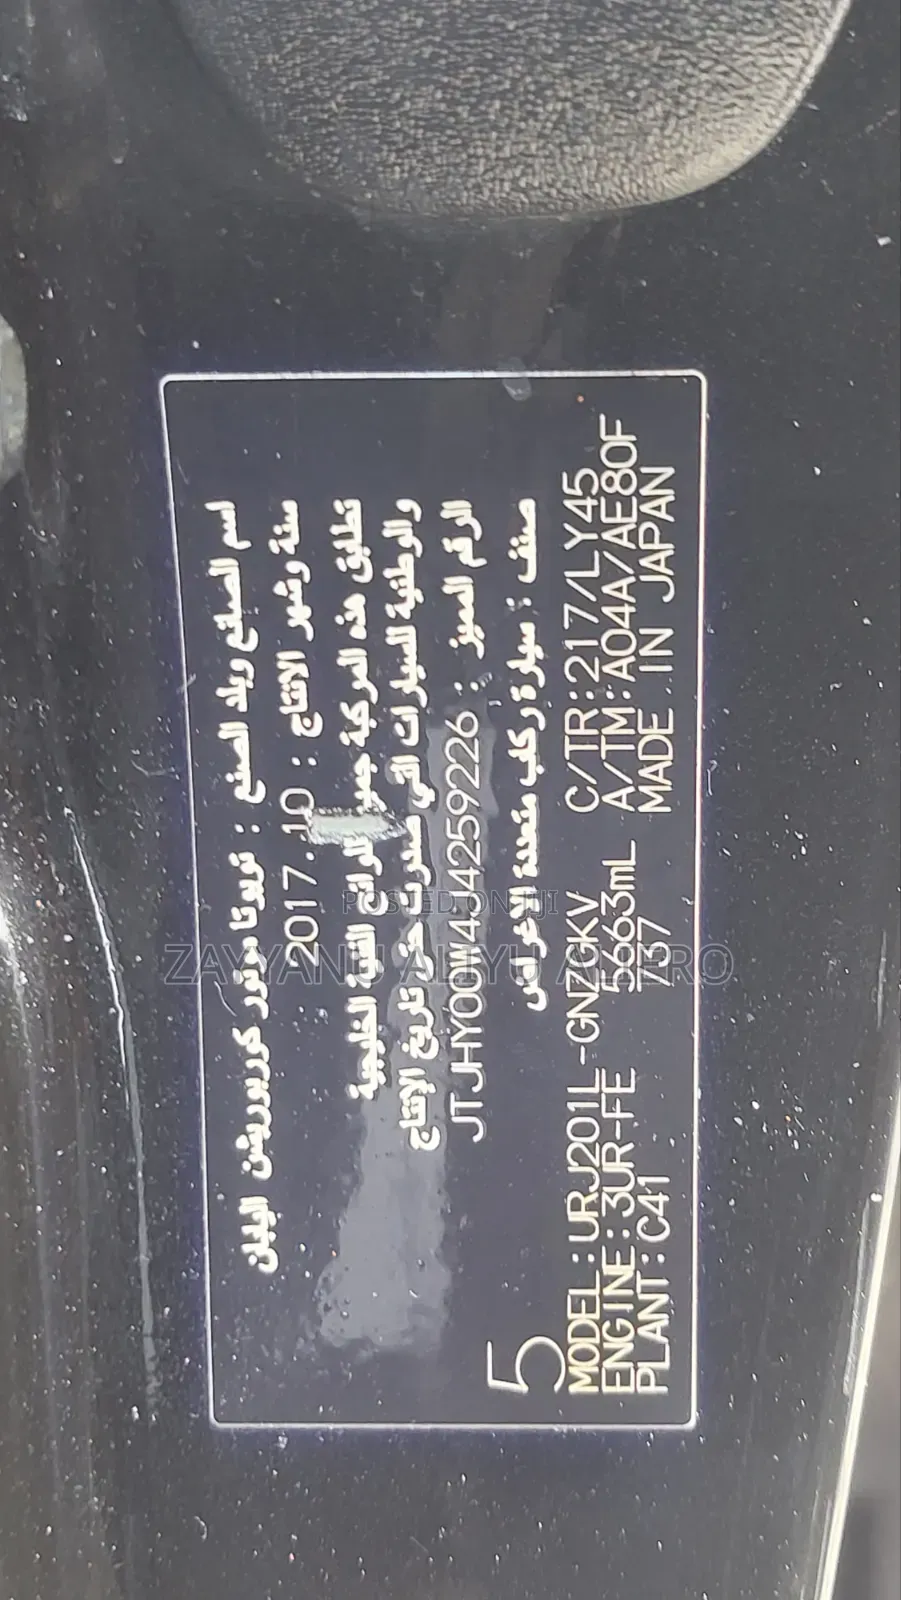 اسم الصانع وبلد الصنع : تويوتا موتور كوربوريشن اليابان
سنة وشهر الانتاج : 2017.10
تطابق هذه المركبة جميع اللوائح الفنية الخليجية
والوطنية للسيارات التي صدرت حتى تاريخ الإنتاج
الرقم المميز : JTJHY00W4J4259226
صنف : سيارة ركاب متعددة الاغراض
5
MODEL:URJ201L-GNZGKV C/TR:217/LY45
ENGINE:3UR-FE 5663mL A/TM:A04A/AE80F
PLANT:C41 737 MADE IN JAPAN
POSTED ON JIJI